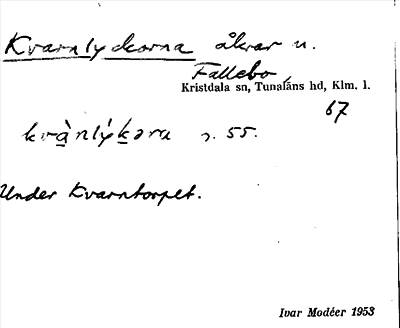 Kvarnlyckorna åkrar u.
Fallebo,
Kristdala sn, Tunaläns hd, Klm. l.
67
kvànlýkəra s. 55.
Under Kvarntorpet.
Ivar Modéer 1953